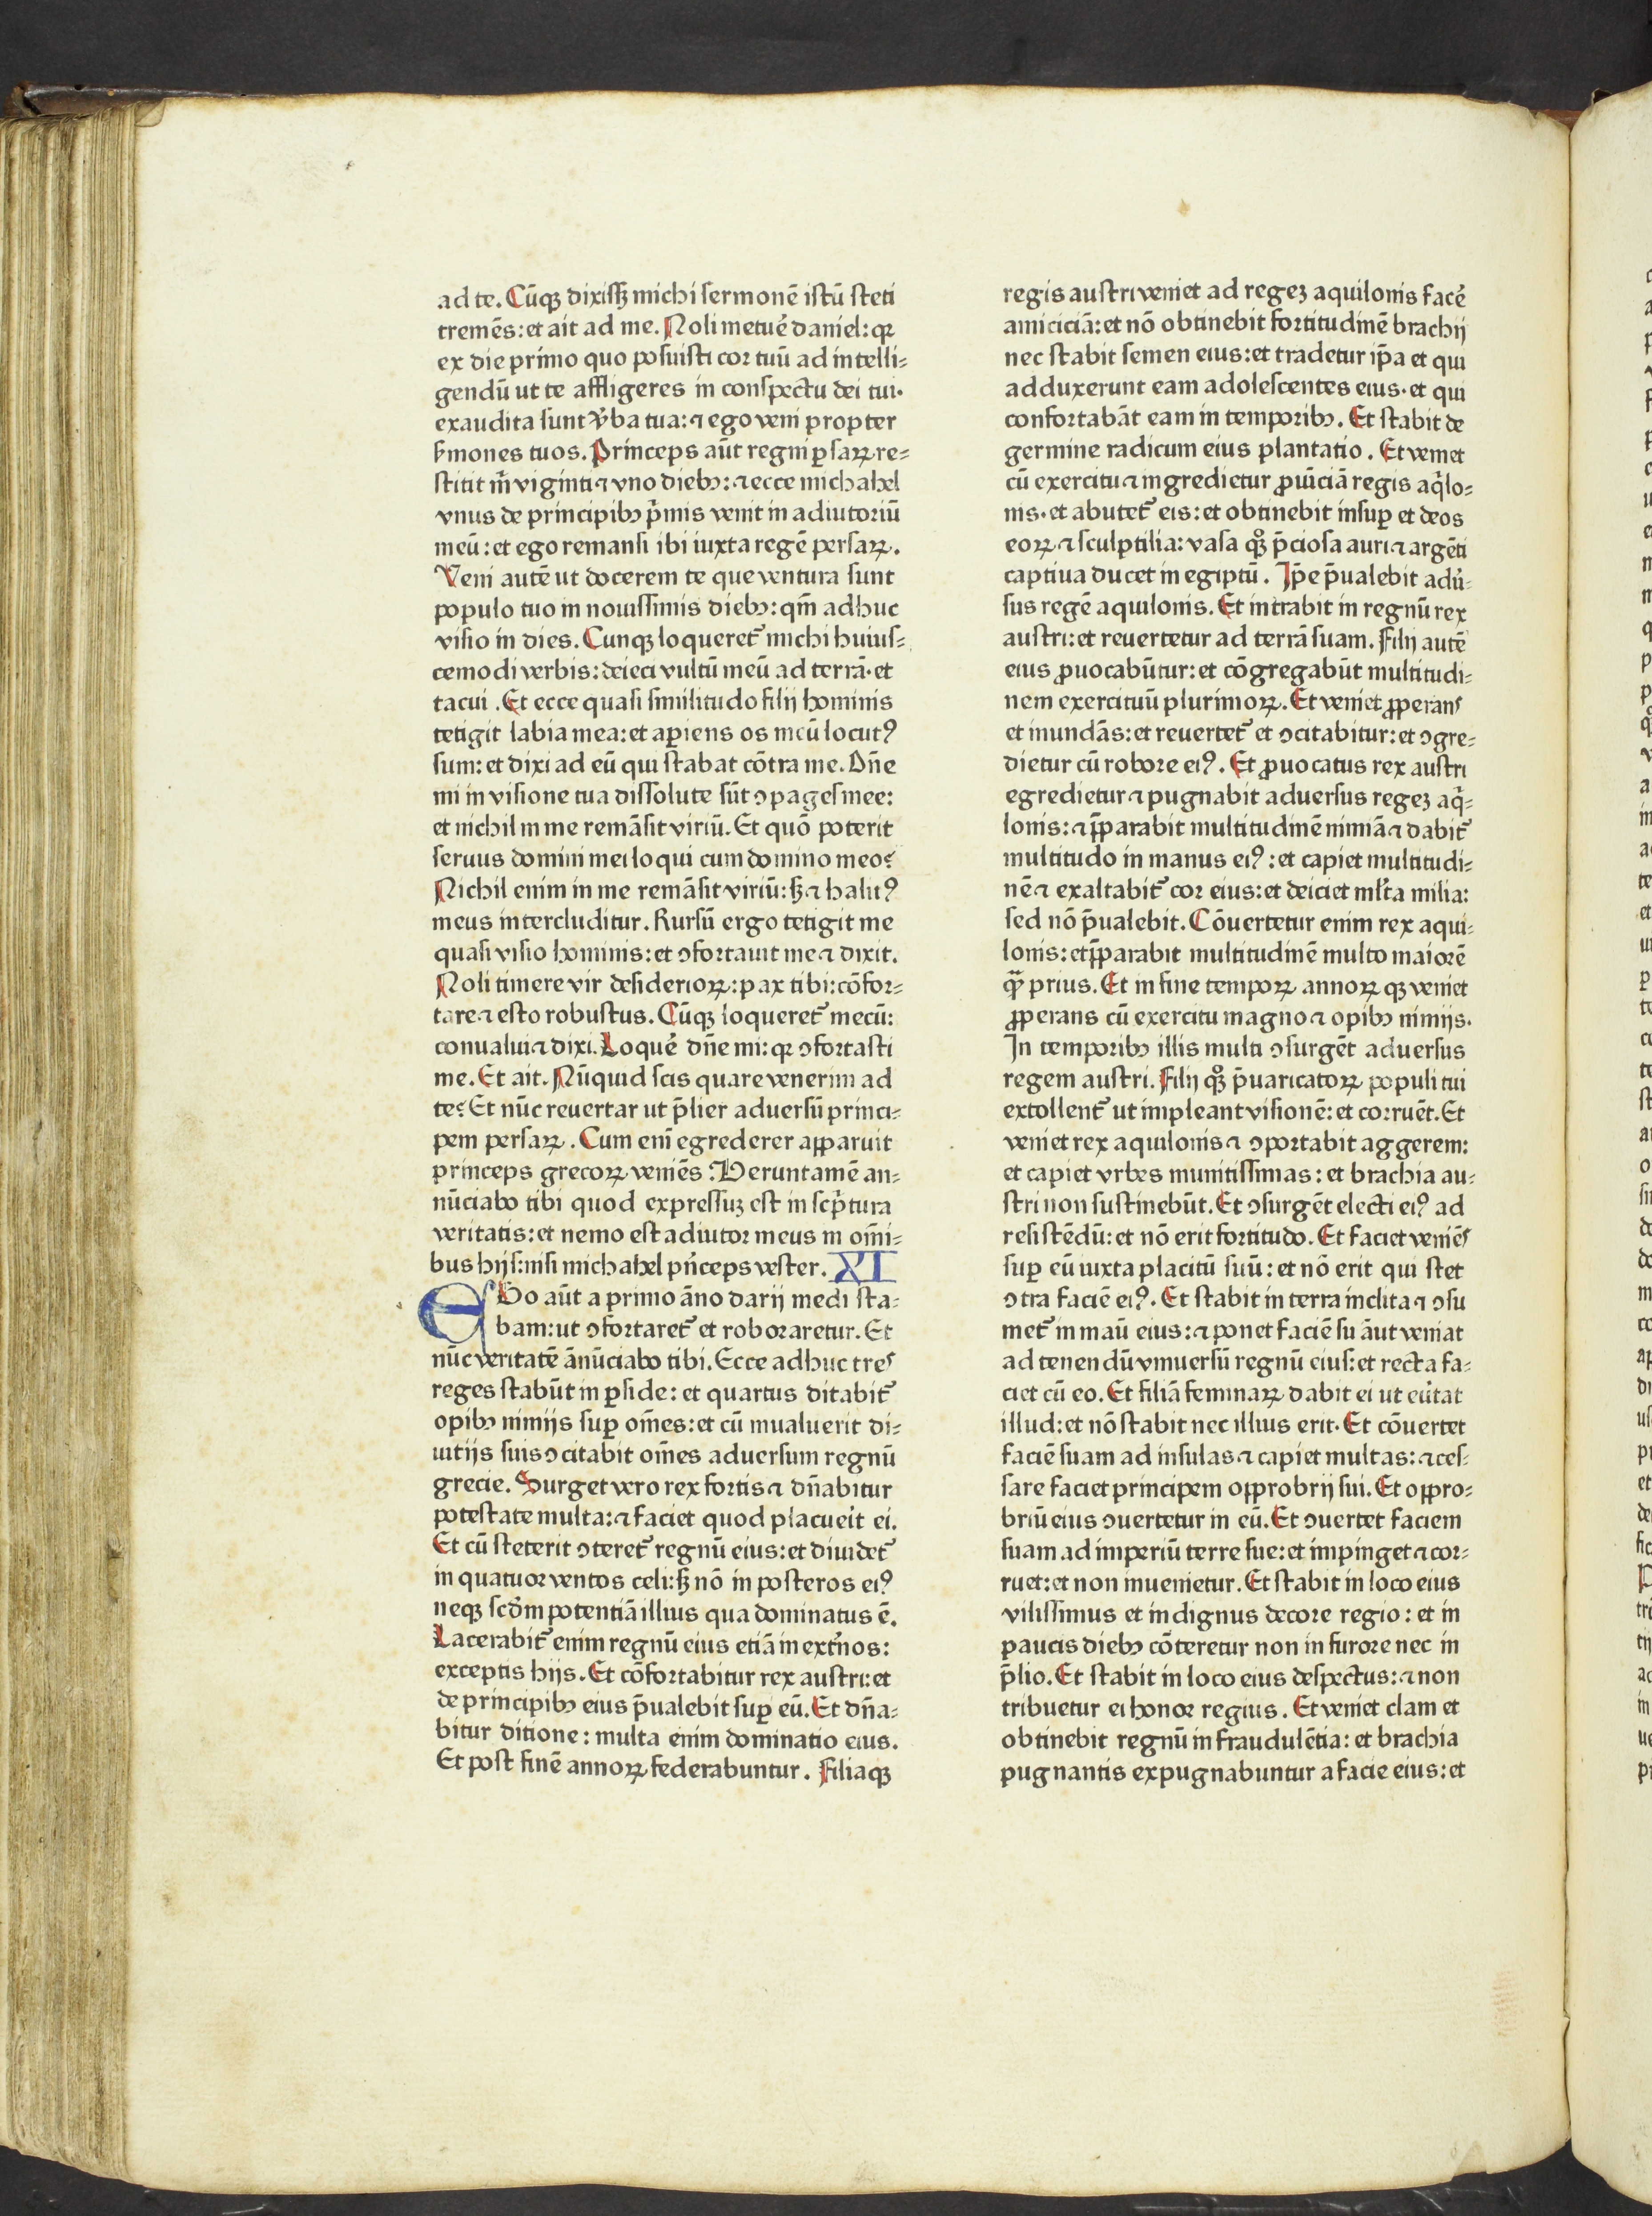 ad te. Cūqꝫ dixisꝫ michi sermonē istū steti
tremēs: et ait ad me. Noli metue᷑ daniel: qꝛ
ex die primo quo posuisti cor tuū ad intelli⸗
gendū ut te affligeres in conspectu dei tui·
exaudita sunt v᷑ba tua: ⁊ ego veni propter
s᷑mones tuos. Princeps aūt regni ꝑsaꝝ re⸗
stitit m̄ viginti ⁊ vno diebꝫ: ⁊ ecce michahel
vnus de principibꝫ pͥmis venit in adiutoriū
meū: et ego remansi ibi iuxta regē persaꝝ.
Veni autē ut docerem te que ventura sunt
populo tuo in nouissimis diebꝫ: qm̄ adhuc
visio in dies. Cunqꝫ loqueret᷑ michi huius⸗
cemodi verbis: deieci vultū meū ad terrā· et
tacui. Et ecce quasi similitudo filij hominis
tetigit labia mea: et aꝑiens os meū locutꝰ
sum: et dixi ad eū qui stabat cōtra me. Dn̄e
mi in visione tua dissolute sūt ꝯpages mee:
et nichil in me remāsit viriū. Et quō poterit
seruus domini mei loqui cum domino meo?
Nichil enim in me remāsit viriū: sꝫ ⁊ halitꝰ
meus intercluditur. Rursū ergo tetigit me
quasi visio hominis: et ꝯfortauit me ⁊ dixit.
Noli timere vir desiderioꝝ: pax tibi: cōfor⸗
tare ⁊ esto robustus. Cūqꝫ loqueret᷑ mecū:
conualui ⁊ dixi. Loque᷑ dn̄e mi: qꝛ ꝯfortasti
me. Et ait. Nūquid scis quare venerim ad
te? Et nūc reuertar ut p̄lier aduersū princi⸗
pem persaꝝ. Cum eni egrederer aꝑparuit
princeps grecoꝝ veniēs. Veruntamē an⸗
nūciabo tibi quod expressuꝫ est in scͥptura
veritatis: et nemo est adiutor meus in om̄i⸗
bus hijs: nisi michahel pͥnceps vester. XI
EGo aūt a primo āno darij medi sta⸗
bam: ut ꝯfortaret᷑ et roboraretur. Et
nūc veritatē ānūciabo tibi. Ecce adhuc tres
reges stabūt in ꝑside: et quartus ditabit᷑
opibꝫ nimijs suꝑ om̄es: et cū inualuerit di⸗
uitijs suis ꝯcitabit om̄es aduersum regnū
grecie. Surget vero rex fortis ⁊ dn̄abitur
potestate multa: ⁊ faciet quod placue᷑it ei.
Et cū steterit ꝯteret᷑ regnū eius: et diuidet᷑
in quatuor ventos celi: sꝫ nō in posteros eiꝰ
neqꝫ scd̄m potentiā illius qua dominatus ē.
Lacerabit᷑ enim regnū eius etiā in ext᷑nos:
exceptis hijs. Et cōfortabitur rex austri: et
de principibꝫ eius p̄ualebit suꝑ eū. Et dn̄a⸗
bitur ditione: multa enim dominatio eius.
Et post finē annoꝝ federabuntur. Filiaqꝫ
regis austri veniet ad regeꝫ aquilonis face᷑
amiciciā: et nō obtinebit fortitudinē brachij
nec stabit semen eius: et tradetur ip̄a et qui
adduxerunt eam adolescentes eius· et qui
confortabāt eam in temporibꝫ. Et stabit de
germine radicum eius plantatio. Et veniet
cū exercitu ⁊ ingredietur ꝓuīciā regis aqͥlo⸗
nis· et abutet᷑ eis: et obtinebit insuꝑ et deos
eoꝝ ⁊ sculptilia: vasa qͦꝫ p̄ciosa auri ⁊ argēti
captiua ducet in egiptū. Ip̄e p̄ualebit adu᷑⸗
sus regē aquilonis. Et intrabit in regnū rex
austri: et reuertetur ad terrā suam. Filij autē
eius ꝓuocabūtur: et cōgregabūt multitudi⸗
nem exercituū plurimoꝝ. Et veniet ꝓperans
et inundās: et reuertet᷑ et ꝯcitabitur: et ꝯgre⸗
dietur cū robore eiꝰ. Et ꝓuocatus rex austri
egredietur ⁊ pugnabit aduersus regeꝫ aqͥ⸗
lonis: ⁊ p̄parabit multitudinē nimiā ⁊ dabit᷑
multitudo in manus eiꝰ: et capiet multitudi⸗
nē ⁊ exaltabit᷑ cor eius: et deiciet ml᷑ta milia:
sed nō p̄ualebit. Cōuertetur enim rex aqui⸗
lonis: et p̄parabit multitudinē multo maiorē
qᷓ prius. Et in fine tempoꝝ annoꝝ qꝫ veniet
ꝓperans cū exercitu magno ⁊ opibꝫ nimijs.
In temporibꝫ illis multi ꝯsurgēt aduersus
regem austri. Filij qͦꝫ p̄uaricatoꝝ populi tui
extollent᷑ ut impleant visionē: et corruēt. Et
veniet rex aquilonis ⁊ ꝯportabit aggerem:
et capiet vrbes munitissimas: et brachia au⸗
stri non sustinebūt. Et ꝯsurgēt electi eiꝰ ad
resistēdū: et nō erit fortitudo. Et faciet veniēs
suꝑ eū iuxta placitū suū: et nō erit qui stet
ꝯtra faciē eiꝰ. Et stabit in terra inclita ⁊ ꝯsu
met᷑ in maū eius: ⁊ ponet faciē su āut veniat
ad tenendū vniuersū regnū eius: et recta fa⸗
ciet cū eo. Et filiā feminaꝝ dabit ei ut eu᷑tat
illud: et nō stabit nec illius erit. Et cōuertet
faciē suam ad insulas ⁊ capiet multas: ⁊ ces⸗
sare faciet principem opprobrij sui. Et oppro⸗
briū eius ꝯuertetur in eū. Et ꝯuertet faciem
suam ad imperiū terre sue: et impinget ⁊ cor⸗
ruet: et non inuenietur. Et stabit in loco eius
vilissimus et indignus decore regio: et in
paucis diebꝫ cōteretur non in furore nec in
p̄lio. Et stabit in loco eius despectus: ⁊ non
tribuetur ei honor regius. Et veniet clam et
obtinebit regnū in fraudulētia: et brachia
pugnantis expugnabuntur a facie eius: et